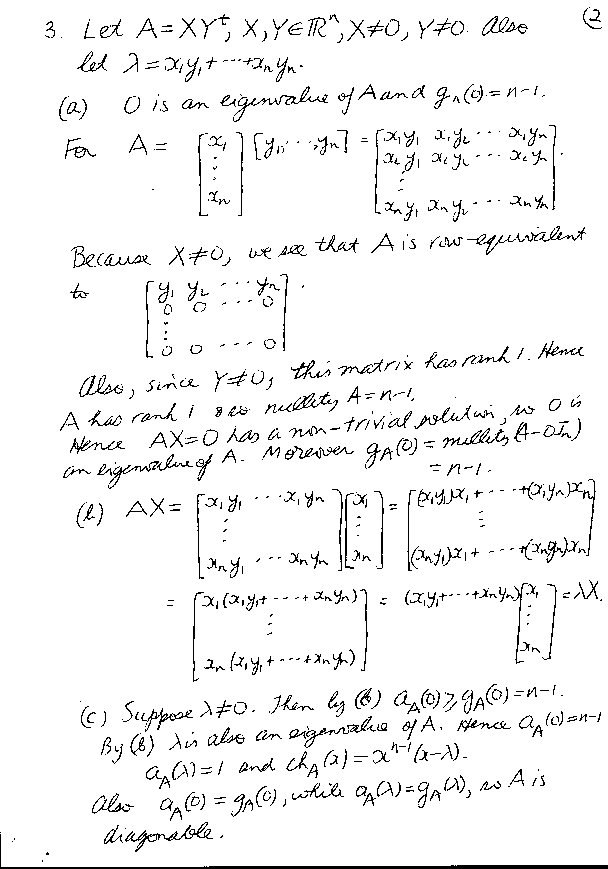 (2
3. Let A=XYᵗ, X,Y∈ℝⁿ, X≠0, Y≠0. Also
let λ=x₁y₁+⋯+xₙyₙ.
(a) 0 is an eigenvalue of A and g_A(0)=n-1.
For A = [x₁ ⋮ xₙ] [y₁, ⋯, yₙ] = [x₁y₁ x₁y₂ ⋯ x₁yₙ
x₂y₁ x₂y₂ ⋯ x₂yₙ
⋮
xₙy₁ xₙy₂ ⋯ xₙyₙ].
Because X≠0, we see that A is row-equivalent
to [y₁ y₂ ⋯ yₙ
0 0 ⋯ 0
⋮
0 0 ⋯ 0].
Also, since Y≠0, this matrix has rank 1. Hence
A has rank 1 & so nullity A=n-1.
Hence AX=0 has a non-trivial solution, so 0 is
an eigenvalue of A. Moreover g_A(0)=nullity(A-0Iₙ)
=n-1.
(b) AX= [x₁y₁ ⋯ x₁yₙ ⋮ xₙy₁ ⋯ xₙyₙ] [x₁ ⋮ xₙ] = [(x₁y₁)x₁+⋯+(x₁yₙ)xₙ ⋮ (xₙy₁)x₁+⋯+(xₙyₙ)xₙ]
= [x₁(x₁y₁+⋯+xₙyₙ) ⋮ xₙ(x₁y₁+⋯+xₙyₙ)] = (x₁y₁+⋯+xₙyₙ)[x₁ ⋮ xₙ] =λX.
(c) Suppose λ≠0. Then by (b) a_A(0)≥g_A(0)=n-1.
By (b) λ is also an eigenvalue of A. Hence a_A(0)=n-1
a_A(λ)=1 and ch_A(x)=xⁿ⁻¹(x-λ).
Also a_A(0)=g_A(0), while a_A(λ)=g_A(λ), so A is
diagonable.